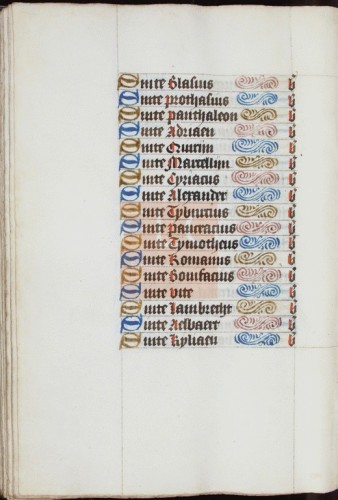 Sinte Blasius b
Sinte prothasius b
Sinte panthaleon b
Sinte Adriaen b
Sinte Quirin b
Sinte Marcellijn b
Sinte Cyriacus b
Sinte Alexander b
Sinte Tyburcius b
Sinte pancracius b
Sinte Tymotheus b
Sinte Romanus b
Sinte Bonifacius b
Sinte vite b
Sinte Lambrecht b
Sinte Aelbaert b
Sinte Kyliaen b